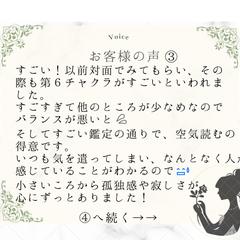 Voice
お客様の声③
すごい！以前対面でみてもらい、その
際も第６チャクラがすごいといわれま
した。
すごすぎて他のところが少なめなので
バランスが悪いと💪
そしてすごい鑑定の通りで、空気読むの
得意です。
いつも気を遣ってしまい、なんとなく人が
感じていることがわかるので
小さいころから孤独感や寂しさが
心にずっとありました！
④へ続く→→